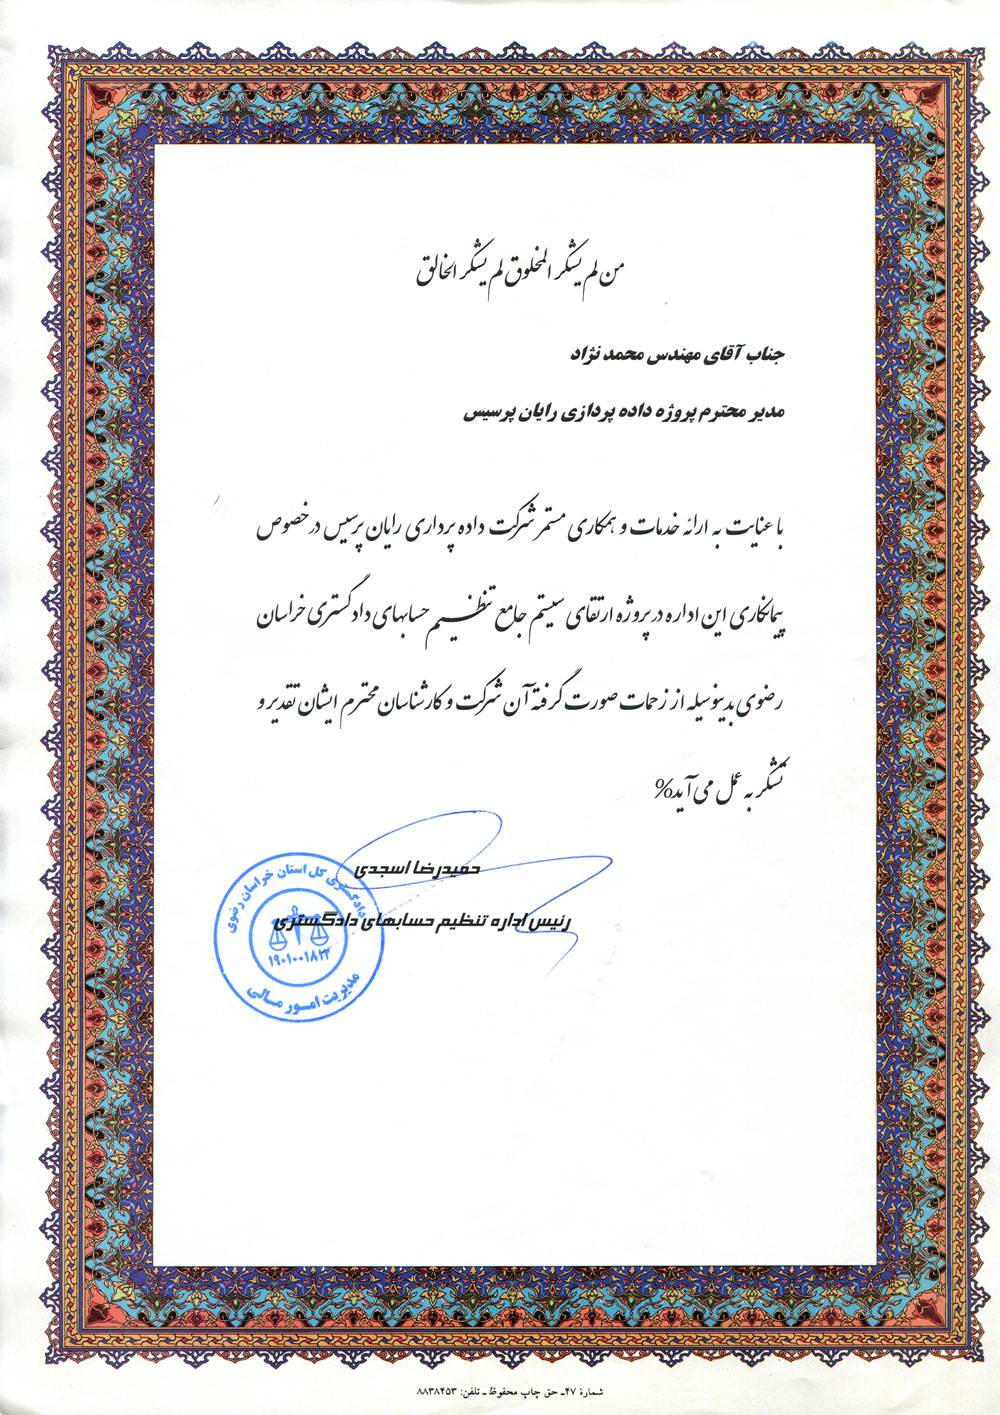 من لم یشکر المخلوق لم یشکر الخالق
جناب آقای مهندس محمد نژاد
مدیر محترم پروژه داده پردازی رایان پرسیس
با عنایت به ارائه خدمات و همکاری مستمر شرکت داده پردازی رایان پرسیس در خصوص
پیمانکاری این اداره در پروژه ارتقای سیستم جامع تنظیم حسابهای دادگستری خراسان
رضوی بدینوسیله از زحمات صورت گرفته آن شرکت و کارشناسان محترم ایشان تقدیر و
تشکر به عمل می آید%
حمیدرضا اسجدی
رئیس اداره تنظیم حسابهای دادگستری
دادگستری کل استان خراسان رضوی
۱۹۰۱۰۰۱۸۲۳
مدیریت امور مالی
شمارهٔ ۴۷ـ حق چاپ محفوظ ـ تلفن: ۸۸۳۸۴۵۳